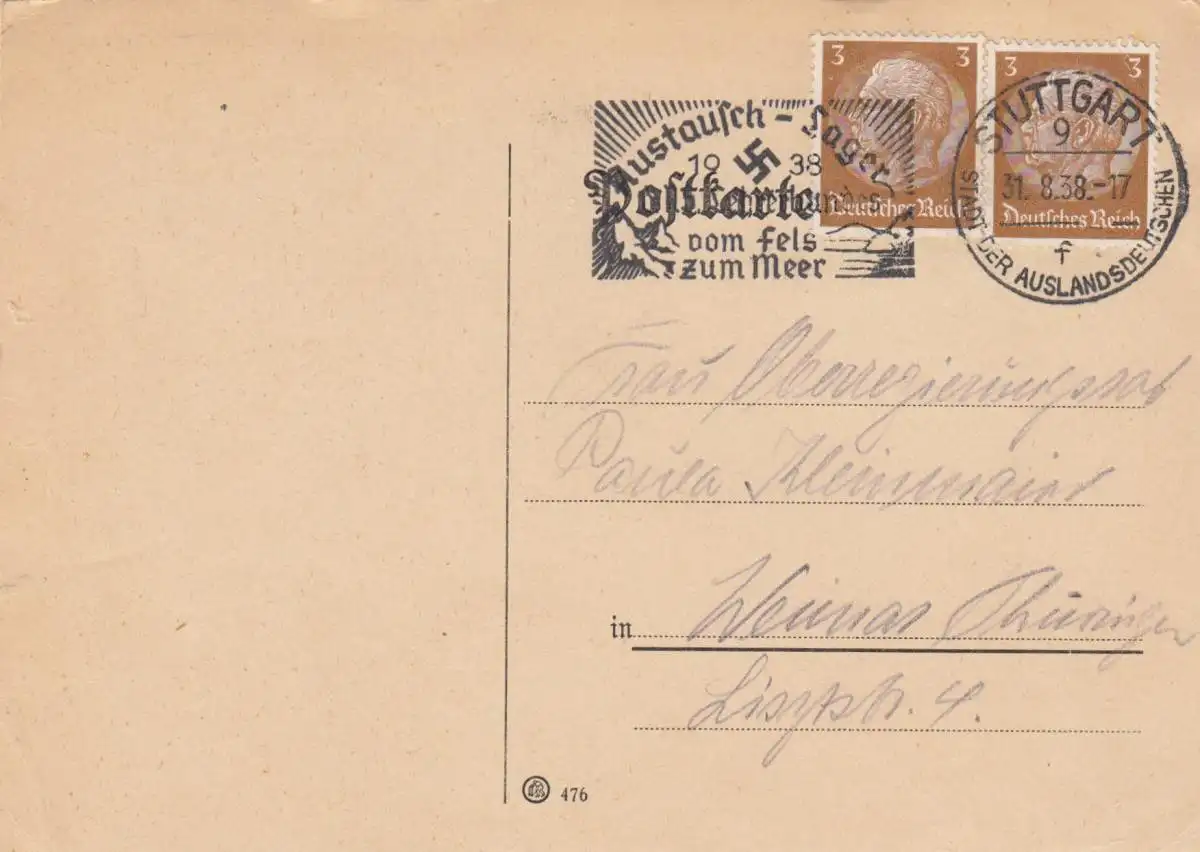 3 3
3 3
Austausch-Lager
19 38
Postkarte
vom Fels
zum Meer
Deutsches Reich
Deutsches Reich
STUTTGART
9
31. 8.38.-17
f
STADT DER AUSLANDSDEUTSCHEN
Frau Oberregierungsrat
Paula Kleinmaier
in Weimar Thüringen
Lisztstr. 4.
476